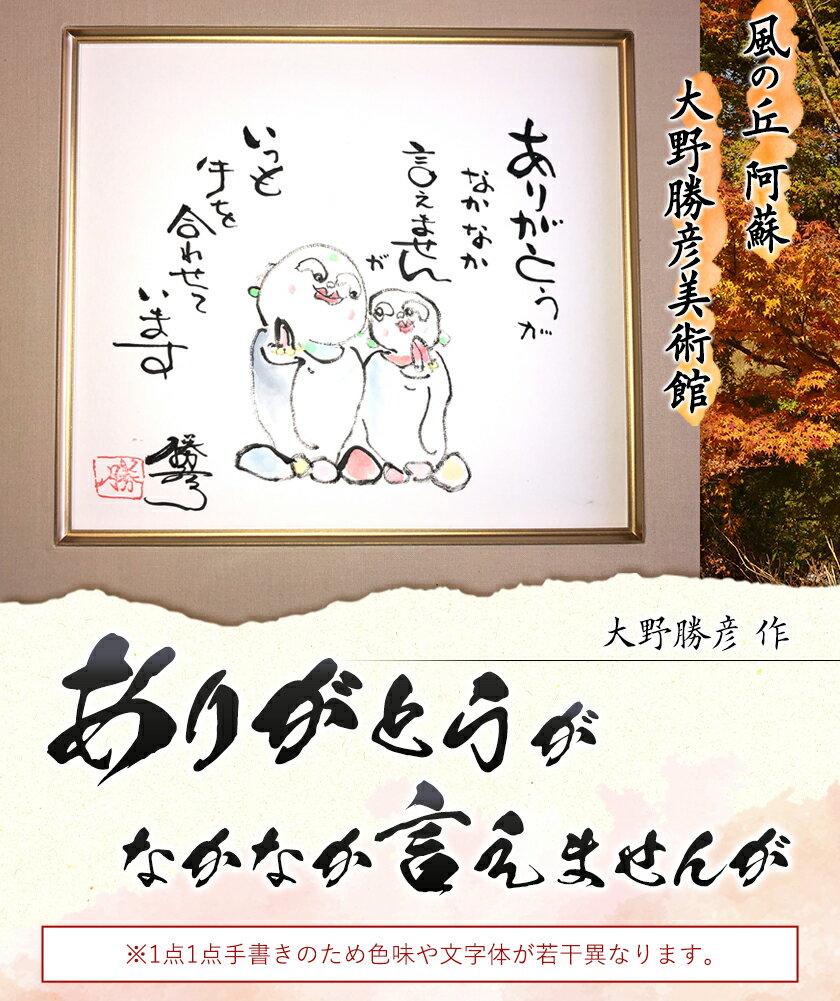 風の丘 阿蘇
大野勝彦美術館
ありがとうが
なかなか
言えません
が
いつも
手を
合わせて
います
勝彦
勝
大野勝彦 作
ありがとうが
なかなか言えませんが
※1点1点手書きのため色味や文字体が若干異なります。